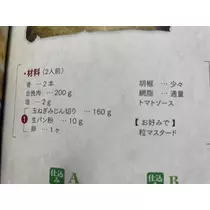 ・材料(2人前)
骨 … 2本
合挽肉 … 200g
塩 … 2g
玉ねぎみじん切り … 160g
1 生パン粉 … 10g
卵 … 1ヶ
胡椒 … 少々
網脂 … 適量
トマトソース
【お好みで】
粒マスタード
仕込み A
仕込み B